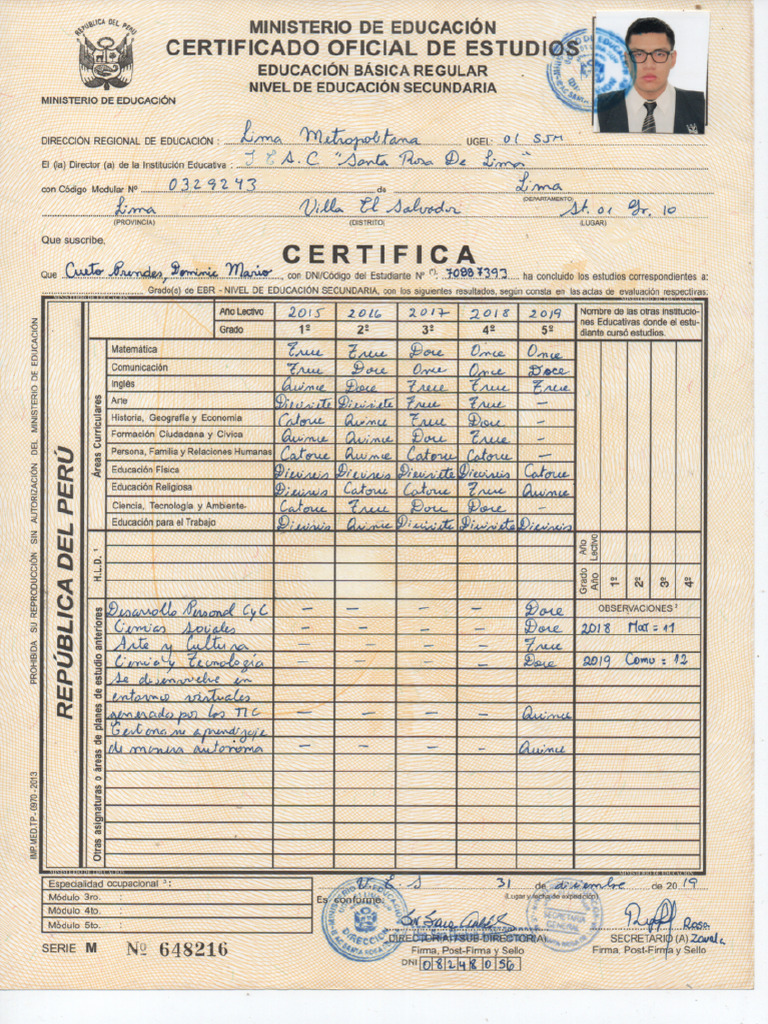 REPÚBLICA DEL PERÚ
MINISTERIO DE EDUCACIÓN
MINISTERIO DE EDUCACIÓN
CERTIFICADO OFICIAL DE ESTUDIOS
EDUCACIÓN BÁSICA REGULAR
NIVEL DE EDUCACIÓN SECUNDARIA
DIRECCIÓN REGIONAL DE EDUCACIÓN : Lima Metropolitana UGEL: 01 SJM
El (la) Director (a) de la Institución Educativa : "Santa Rosa De Lima"
con Código Modular Nº 0329243 de Lima
(DEPARTAMENTO)
Lima Villa El Salvador St. 01 Gr. 10
(PROVINCIA) (DISTRITO) (LUGAR)
Que suscribe,
CERTIFICA
Que Cueto Prendes, Dominic Mario, con DNI/Código del Estudiante Nº 70887393 ha concluido los estudios correspondientes a:
Grado(s) de EBR - NIVEL DE EDUCACIÓN SECUNDARIA, con los siguientes resultados, según consta en las actas de evaluación respectivas:
Año Lectivo 2015 2016 2017 2018 2019 Nombre de las otras Instituciones Educativas donde el estudiante cursó estudios.
Grado 1º 2º 3º 4º 5º
Áreas Curriculares
Matemática Trece Trece Doce Once Once
Comunicación Trece Doce Once Once Doce
Inglés Quince Doce Trece Trece Trece
Arte Diecisiete Diecisiete Trece Trece -
Historia, Geografía y Economía Catorce Quince Trece Doce -
Formación Ciudadana y Cívica Quince Quince Doce Trece -
Persona, Familia y Relaciones Humanas Catorce Quince Catorce Catorce -
Educación Física Dieciseis Dieciseis Diecisiete Dieciseis Catorce
Educación Religiosa Dieciseis Catorce Catorce Trece Quince
Ciencia, Tecnología y Ambiente Catorce Trece Doce Doce -
Educación para el Trabajo Dieciseis Quince Diecisiete Diecisiete Dieciseis
H.L.D. ¹
Año Lectivo
Grado Año 1º 2º 3º 4º
Otras asignaturas o áreas de planes de estudio anteriores
OBSERVACIONES ²
Desarrollo Personal CyC - - - - Doce
Ciencias Sociales - - - - Doce 2018 Mat = 11
Arte y Cultura - - - - Trece
Ciencia y Tecnología - - - - Doce 2019 Comu = 12
Se desenvuelve en
entornos virtuales
generados por las TIC - - - - Quince
Gestiona su aprendizaje
de manera autonoma - - - - Quince
REPÚBLICA DEL PERÚ
PROHIBIDA SU REPRODUCCIÓN SIN AUTORIZACIÓN DEL MINISTERIO DE EDUCACIÓN
IMP.MED.TP. - 0970 - 2013
Especialidad ocupacional ³ :
Módulo 3ro. :
Módulo 4to. :
Módulo 5to. :
V. E. S 31 de diciembre de 2019
(Lugar y fecha de expedición)
Es conforme:
DIRECCIÓN
SECRETARIA GENERAL
DIRECTOR(A) / SUB-DIRECTOR(A)
Firma, Post-Firma y Sello
DNI 08248056
SECRETARIO (A)
Firma, Post-Firma y Sello
SERIE M Nº 648216